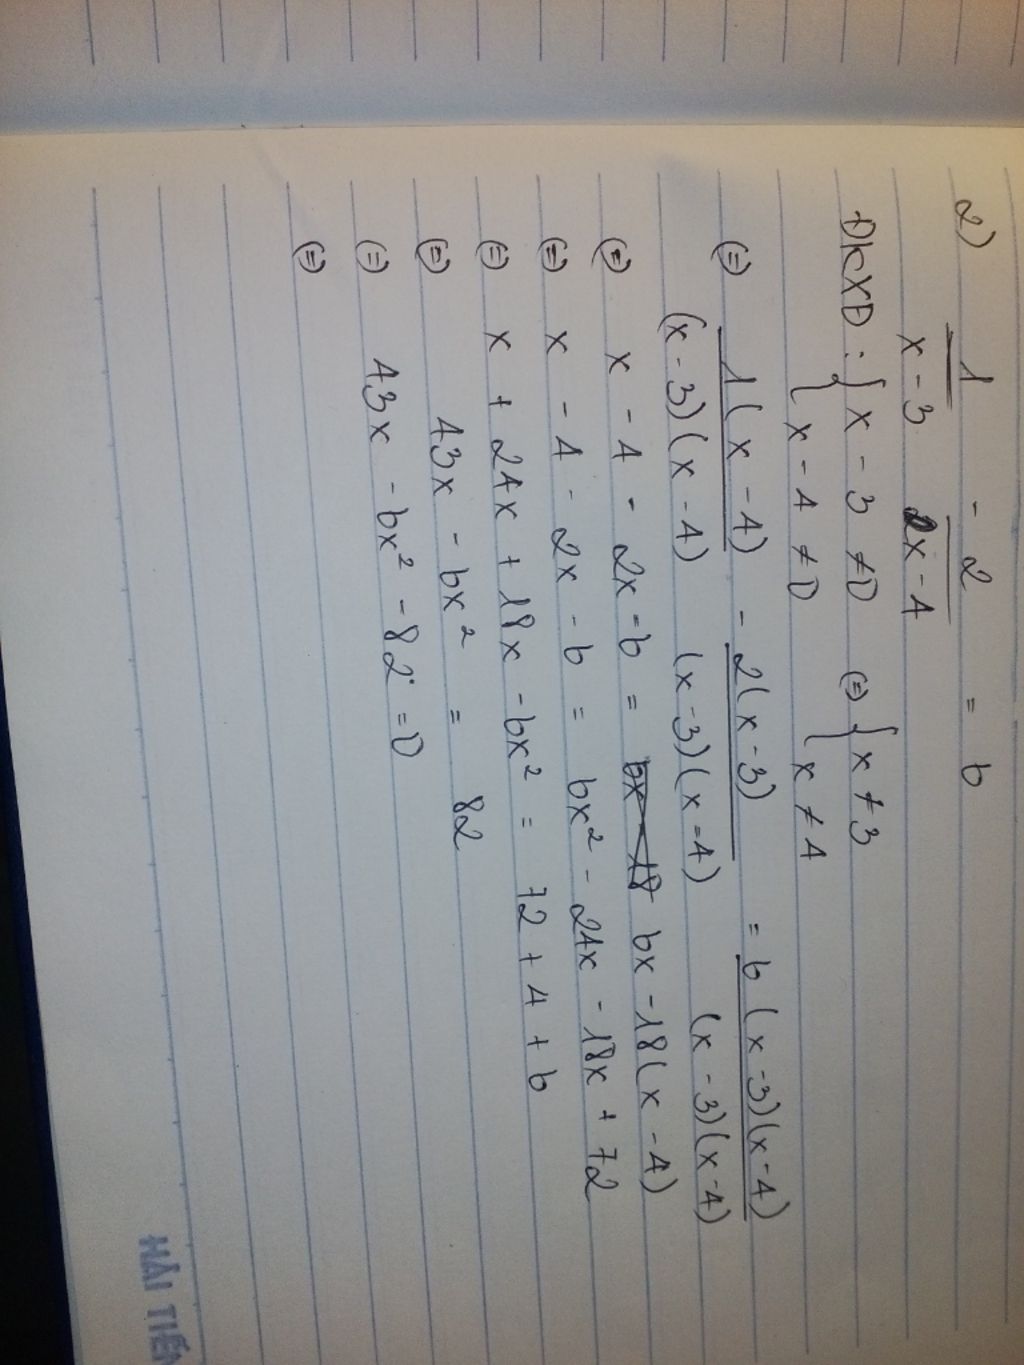 2) 1/(x - 3) - 2/(x - 4) = 6
ĐKXĐ : { x - 3 ≠ 0 (=) { x ≠ 3
{ x - 4 ≠ 0 { x ≠ 4
(=) 1(x - 4)/((x - 3)(x - 4)) - 2(x - 3)/((x - 3)(x - 4)) = 6(x - 3)(x - 4)/((x - 3)(x - 4))
(=) x - 4 - 2x - 6 = 6x - 18(x - 4)
(=) x - 4 - 2x - 6 = 6x² - 24x - 18x + 72
(=) x + 24x + 18x - 6x² = 72 + 4 + 6
(=) 43x - 6x² = 82
(=) 43x - 6x² - 82 = 0
(=)
HẢI TIẾN